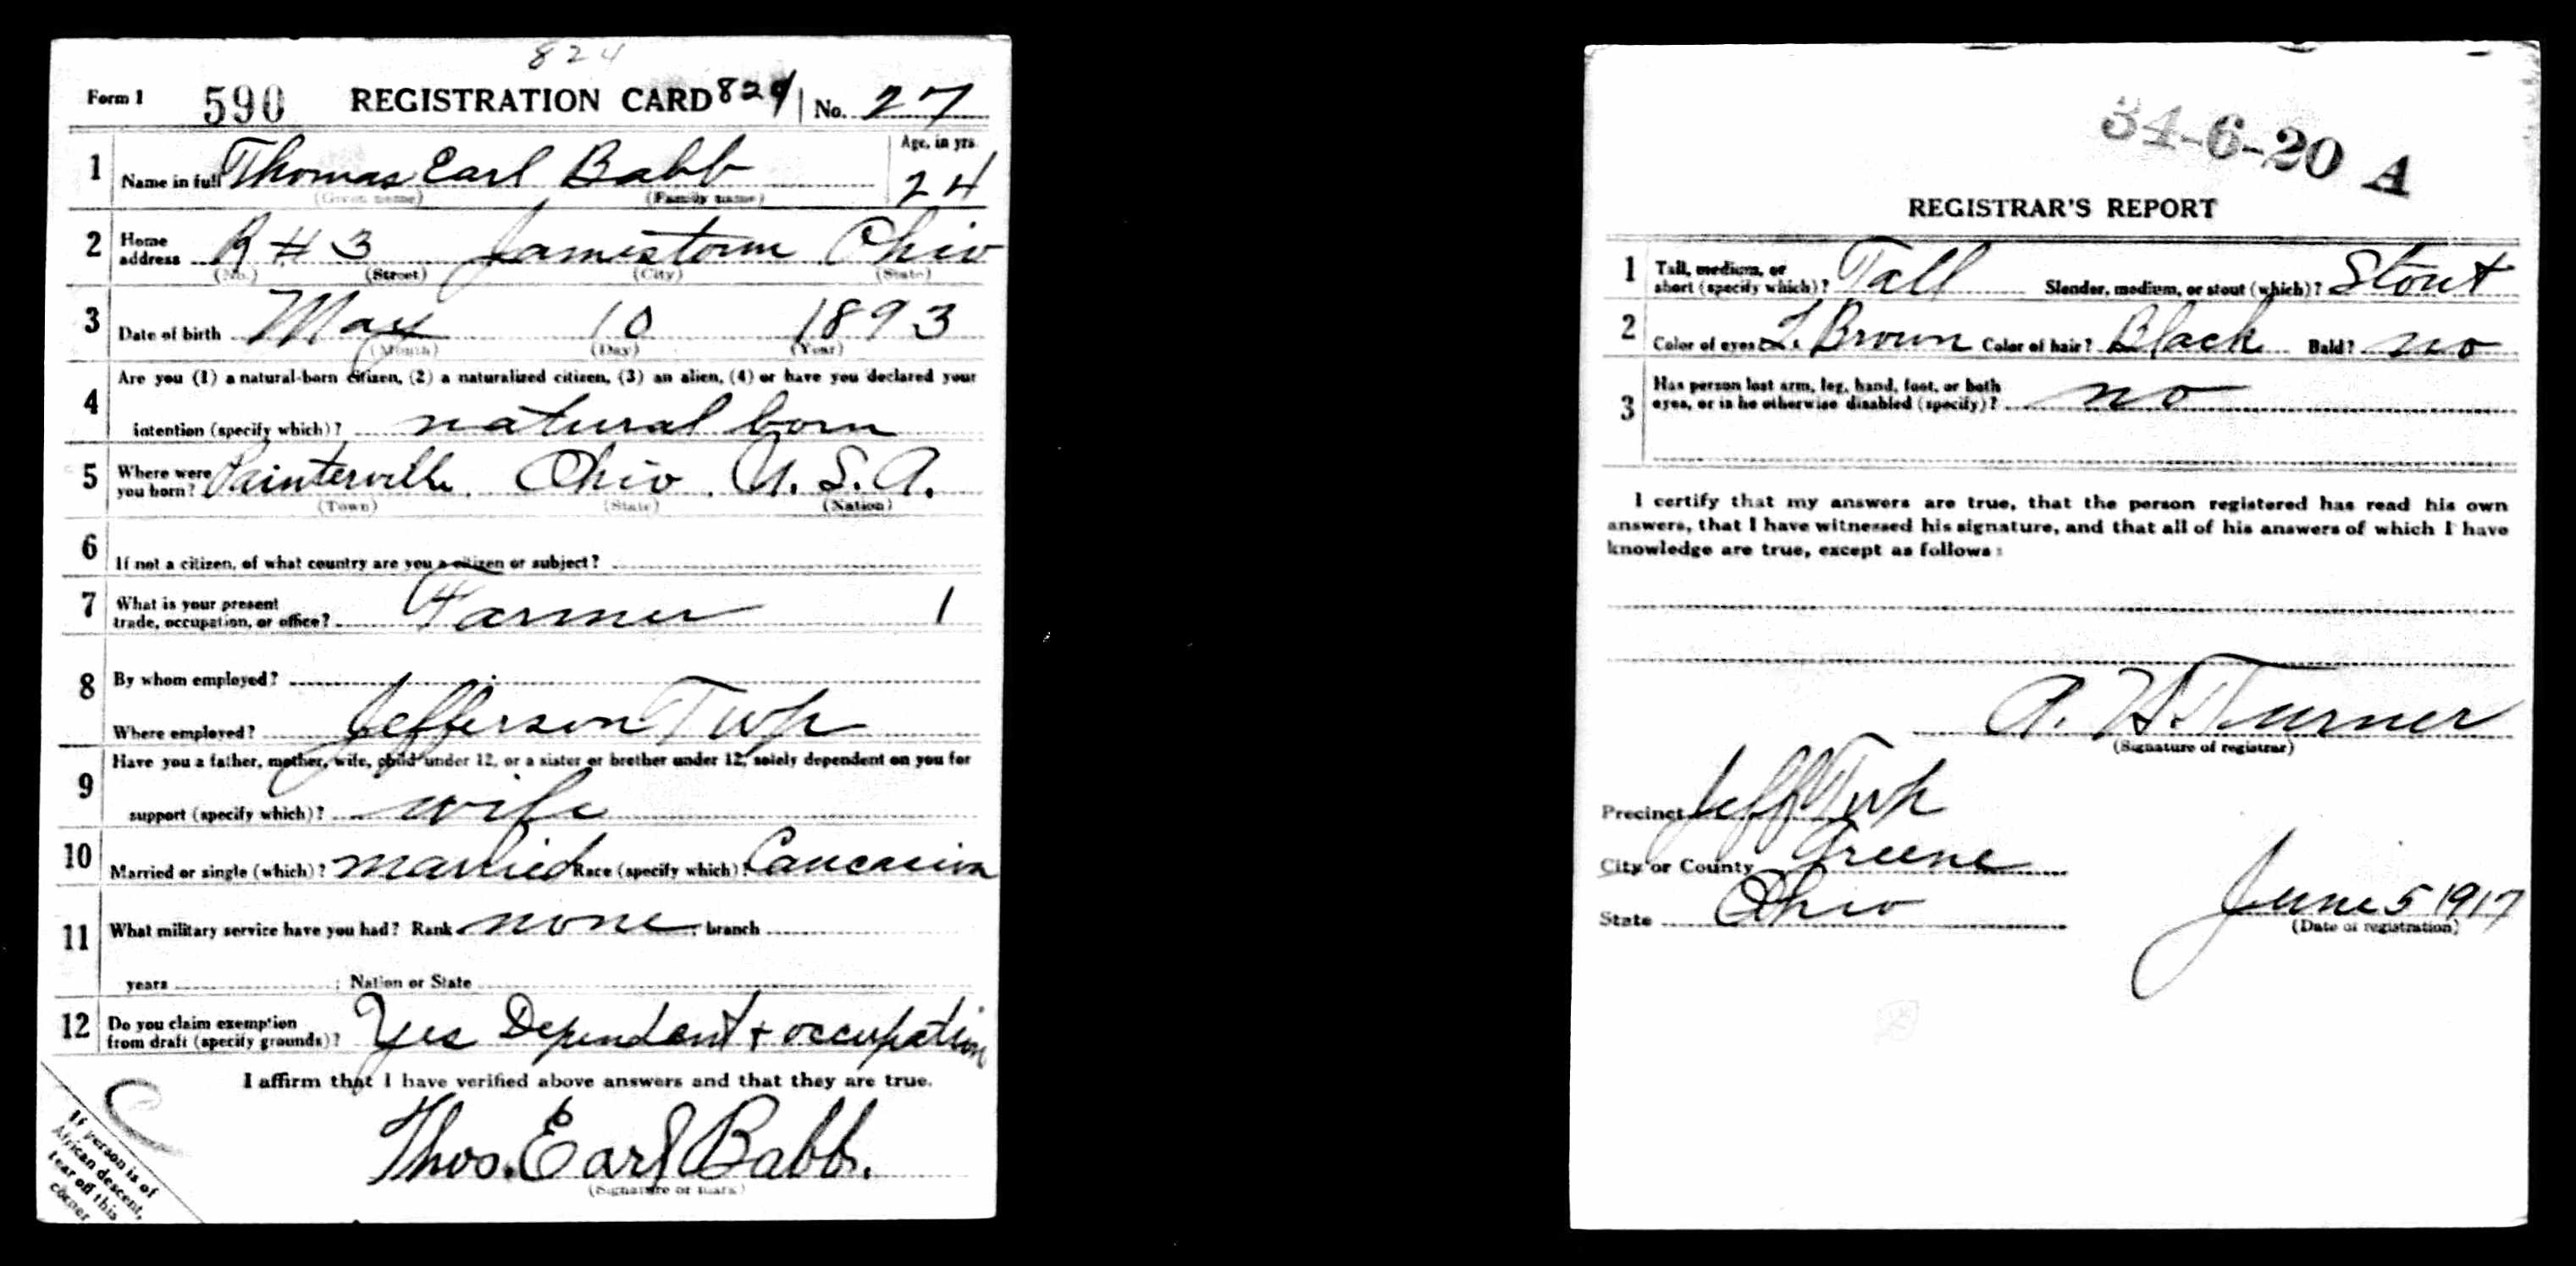 824
Form 1 590 REGISTRATION CARD 824 No. 27
1 Name in full Thomas Earl Babb Age, in yrs. 24
(Given name) (Family name)
2 Home address R # 3 Jamestown Ohio
(No.) (Street) (City) (State)
3 Date of birth May 10 1893
(Month) (Day) (Year)
4 Are you (1) a natural-born citizen, (2) a naturalized citizen, (3) an alien, (4) or have you declared your
intention (specify which)? natural born
5 Where were you born? Painterville, Ohio, U.S.A.
(Town) (State) (Nation)
6 If not a citizen, of what country are you a citizen or subject?
7 What is your present trade, occupation, or office? Farmer 1
8 By whom employed?
Where employed? Jefferson Twp
9 Have you a father, mother, wife, child under 12, or a sister or brother under 12, solely dependent on you for
support (specify which)? wife
10 Married or single (which)? married Race (specify which)? Caucasian
11 What military service have you had? Rank none; branch
years ; Nation or State
12 Do you claim exemption from draft (specify grounds)? Yes Dependent + occupation
I affirm that I have verified above answers and that they are true.
Thos. Earl Babb.
(Signature or mark)
If person is of
African descent,
tear off this
corner
34-6-20 A
REGISTRAR'S REPORT
1 Tall, medium, or short (specify which)? Tall Slender, medium, or stout (which)? Stout
2 Color of eyes? L. Brown Color of hair? Black Bald? no
3 Has person lost arm, leg, hand, foot, or both
eyes, or is he otherwise disabled (specify)? no
I certify that my answers are true, that the person registered has read his own
answers, that I have witnessed his signature, and that all of his answers of which I have
knowledge are true, except as follows:
A. H. Turner
(Signature of registrar)
Precinct Jeff Twp
City or County Greene
State Ohio June 5 1917
(Date of registration)